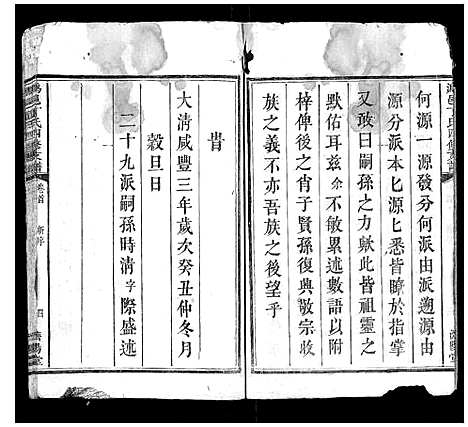 何源一源發分何派由派遡源由
源分派本匕源匕悉皆瞭於指掌
又敢曰嗣孫之力歟此皆祖靈之
默佑耳兹余不敏累述數語以附
梓俾後之肖子賢孫復興敬宗收
族之義不亦吾族之後望乎
昔
大清咸豐三年歲次癸丑仲冬月
穀旦日
二十九派嗣孫時清字際盛述
卷首
新序
四
濟陽堂